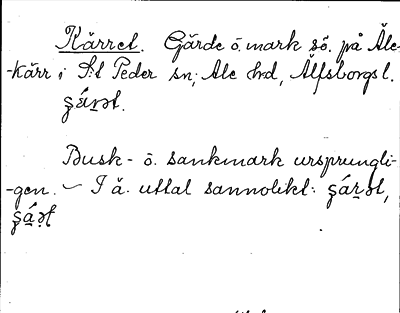 Kärret. Gärde o. mark sö. på Äle-
-kärr i S:t Peder sn, Ale hd, Älfsborgs l.
şá̱rət.
Busk- o. sankmark ursprungli-
-gen. – I ä. uttal sannolikt: şárət,